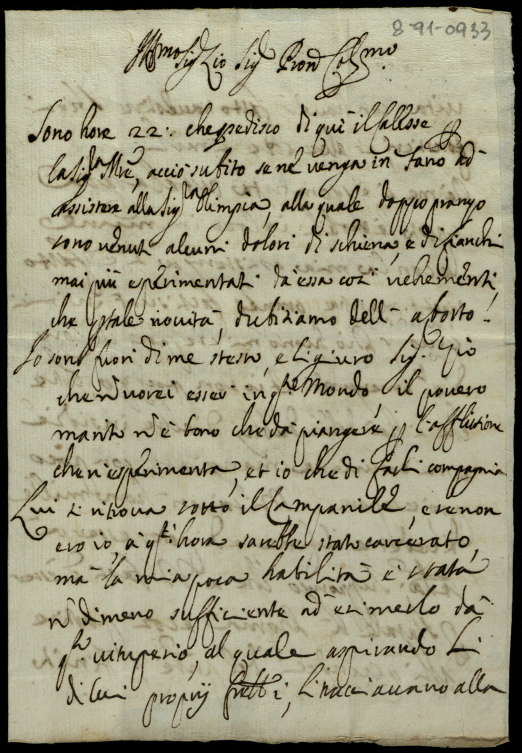 8-91-0933
Ill.mo Sig. Zio Sig. Pron Col.mo
Sono hore 22: che spedisco di quì il Calesse p
la Sig.ra Mre, acciò subito se ne venga in Fano ad
assistere alla Sig.ra Olimpia, alla quale doppo pranzo
sono venuti alcuni dolori di schiena, e di fianchi
mai più esperimentati da essa così vehementi,
che p tale novità, dubitiamo dell' aborto.
Io sono fuori di me stesso, e Li giuro Sig. Zio
che n vorei esser in q.to Mondo, il povero
marito n è bono che da piangere p l'afflitione
che n'esperimenta, et io che di farli compagnia
Lui si ritrova sotto il Campanile, e se non
ero io, a q.t'hora sarebbe stato carcerato,
ma la mia poca habilità è stata
n dimeno sufficiente ad esimerlo da
q.to vituperio, al quale aspirando Li
di Lui proprij fratti, Linacciavano alla